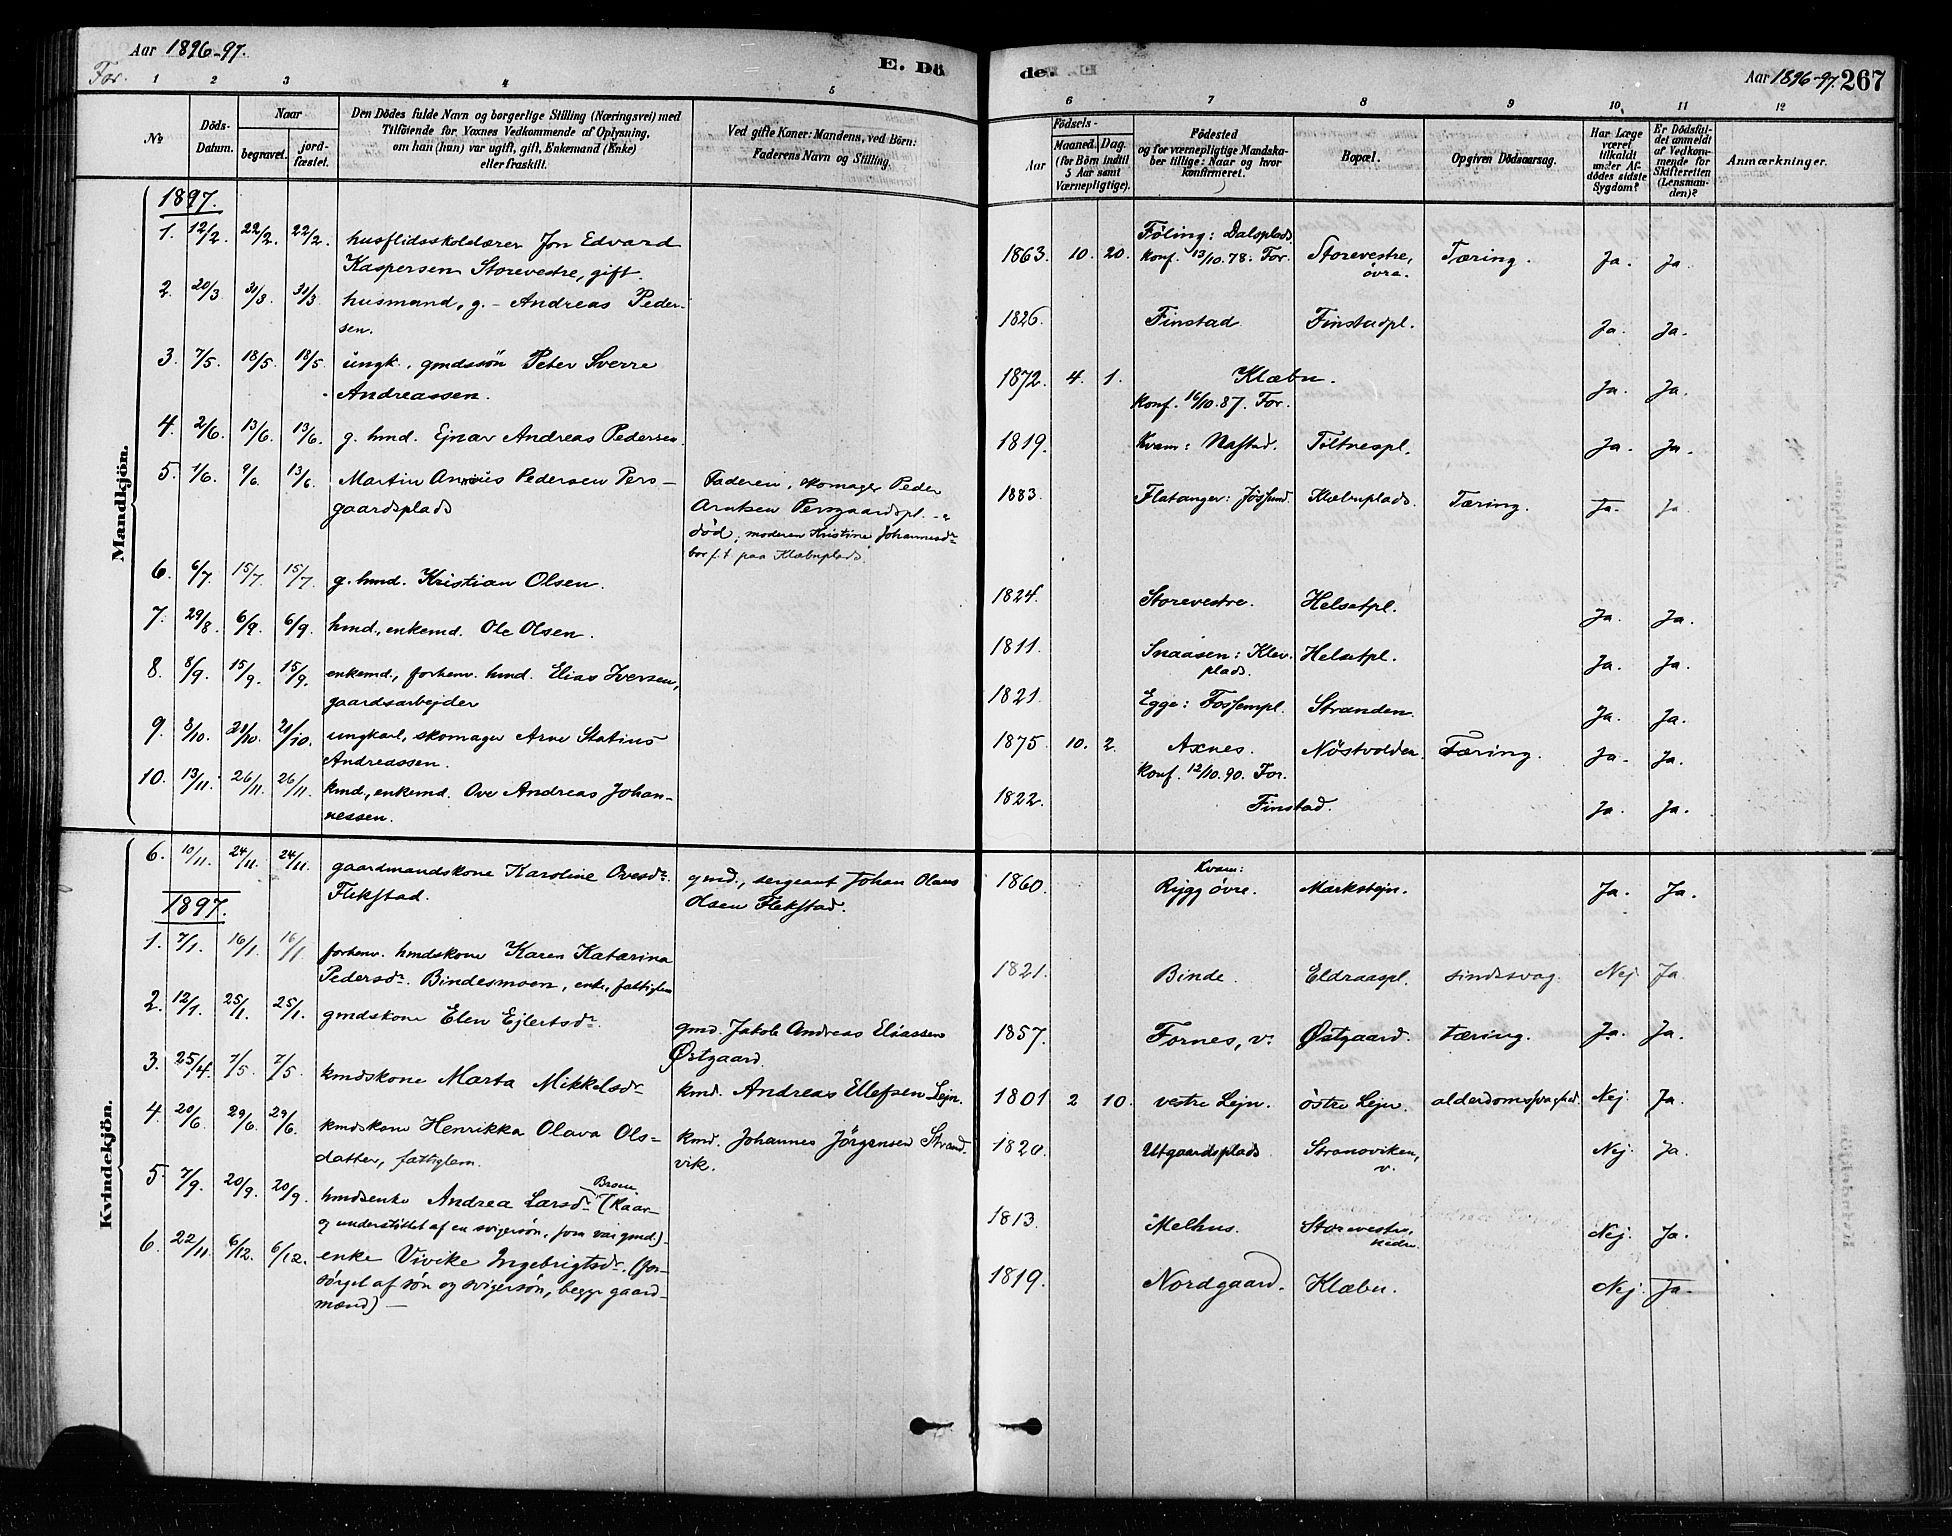 Aar 1896-97.
For.
E. Dö
de.
Aar 1896-97. 267
1 2 3 4 5 6 7 8 9 10 11 12
No
Döds-Datum.
Naar
begravet.
jord-fæstet.
Den Dödes fulde Navn og borgerlige Stilling (Næringsvei) med
Tilföiende for Voxnes Vedkommende af Oplysning,
om han (hun) var ugift, gift, Enkemand (Enke)
eller fraskilt.
Ved gifte Koner: Mandens, ved Börn:
Faderens Navn og Stilling.
Födsels-
Aar
Maaned. Dag.
(for Börn indtil
5 Aar samt
Værnepligtige).
Födested
og for værnepligtige Mandska-
ber tillige: Naar og hvor
konfirmeret.
Bopæl.
Opgiven Dödsaarsag.
Har Læge
været
tilkaldt
under Af-
dödes sidste
Sygdom?
Er Dödsfal-
det anmeldt
af Vedkom-
mende for
Skifteretten
(Lensman-
den)?
Anmærkninger.
Mandkjön.
1897.
1. 12/2. 22/2. 22/2. husflidsskolelærer Jon Edvard
Kaspersen Storevestre, gift.
1863. 10. 20. Følling: Dalsplads.
Konf. 13/10.78: For. Storevestre,
övra. Tæring. Ja. Ja.
2. 20/3 31/3 31/3 husmand, g. - Andreas Peder-
sen.
1826. Finstad Finstadpl. Ja. Ja.
3. 7/5. 18/5. 18/5. ungk., gmdssön Peter Sverre
Andreassen.
1872. 4. 1. Klæbu.
Konf. 16/10.87. For. Ja. Ja.
4. 2/6. 13/6. 13/6. g. hmd. Ejnar Andreas Pedersen.
1819. Kvam: Nastad. Töltnespl. Ja. Ja.
5. 1/6. 9/6. 13/6. Martin Pedersen Pers-
gaardsplads
Faderen, skomager Peder
Arntsen Persgaardspl. -
död, moderen Kristine Johannesdr
bor f.t. paa Klæbuplads.
1883. Flatanger: Jössund Klæbuplads. Tæring. Ja. Ja.
6. 6/7. 15/7. 15/7. g. hmd. Kristian Olsen.
1824. Storevestre. Helsetpl. Ja. Ja.
7. 29/8. 6/9. 6/9. hmd., enkemd. Ole Olsen.
1811. Snaasen: Klev-
plads. Helsetpl. Ja. Ja.
8. 8/9. 15/9. 15/9. enkemd., forhenv. hmd. Elias Iversen,
gaardsarbejder
1821. Egge: Fossempl. Stranden. Ja. Ja.
9. 8/10. 21/10. 21/10. ungkarl, skomager Arne Statius
Andreassen.
1875. 10. 2. Axnes.
Konf. 12/10.90. For. Nöstvolden Tæring. Ja. Ja.
10. 13/11. 26/11. 26/11. kmd., enkemd. Ove Andreas Johan-
nessen.
1822. Finstad. Ja. Ja.
Kvindekjön.
6. 10/11. 24/11. 24/11. gaardmandskone Karoline Ovesdr.
Flekstad.
gmd., sergeant Johan Olaus
Olsen Flekstad.
1860. Kvam:
Rygg övre. Markstejn. Ja. Ja.
1897.
1. 7/1. 16/1. 16/1. forhenv. hmdskone Karen Katarina
Pedersdr. Bindesmoen, enke, fattiglem
1821. Binde. Eldraaspl. sindssvag. Nej. Ja.
2. 12/1. 25/1. 25/1. gmdskone Elen Ejlertsdr.
gmd. Jakob Andreas Eliassen
Østgaard.
1857. Fornes, v. Østgaard. tæring. Ja. Ja.
3. 25/4. 7/5. 7/5. kmdskone Marta Mikkelsdr
kmd. Andreas Ellefsen Lejn.
1801 2 10. vestre Lejn. östre Lejn. alderdomssvaghed. Nej. Ja.
4. 20/6. 29/6. 29/6. kmdskone Henrikka Olava Ols-
datter, fattiglem.
kmd. Johannes Jörgensen Strand-
vik.
1820. Utgaardsplads Strandviken,
v. Nej. Ja.
5. 7/9. 20/9. 20/9. hmdsenke Andrea Larsdr. (kaar-
og understöttet af en svigersön, som var gmd.) -
1813. Melhus. Storevestre,
nedre. Nej. Ja.
6. 22/11. 6/12. 6/12. enke Vivike Ingebrigtsdr. (for-
sörget af sön og svigersön, begge gaard-
mænd) -
1819. Nordgaard. Klæbu. Nej. Ja.